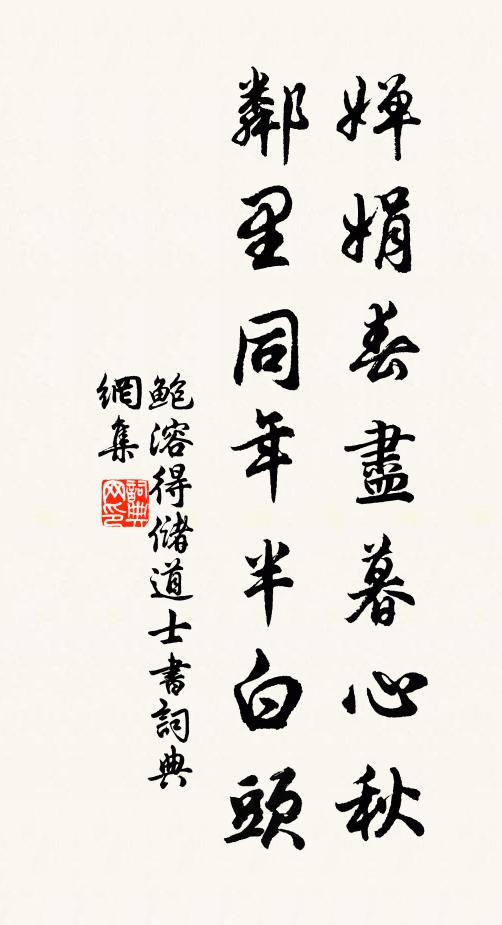 嬋娟春盡暮心秋
鄰里同年半白頭
鮑溶得儲道士書詞典
網集
詞典網印